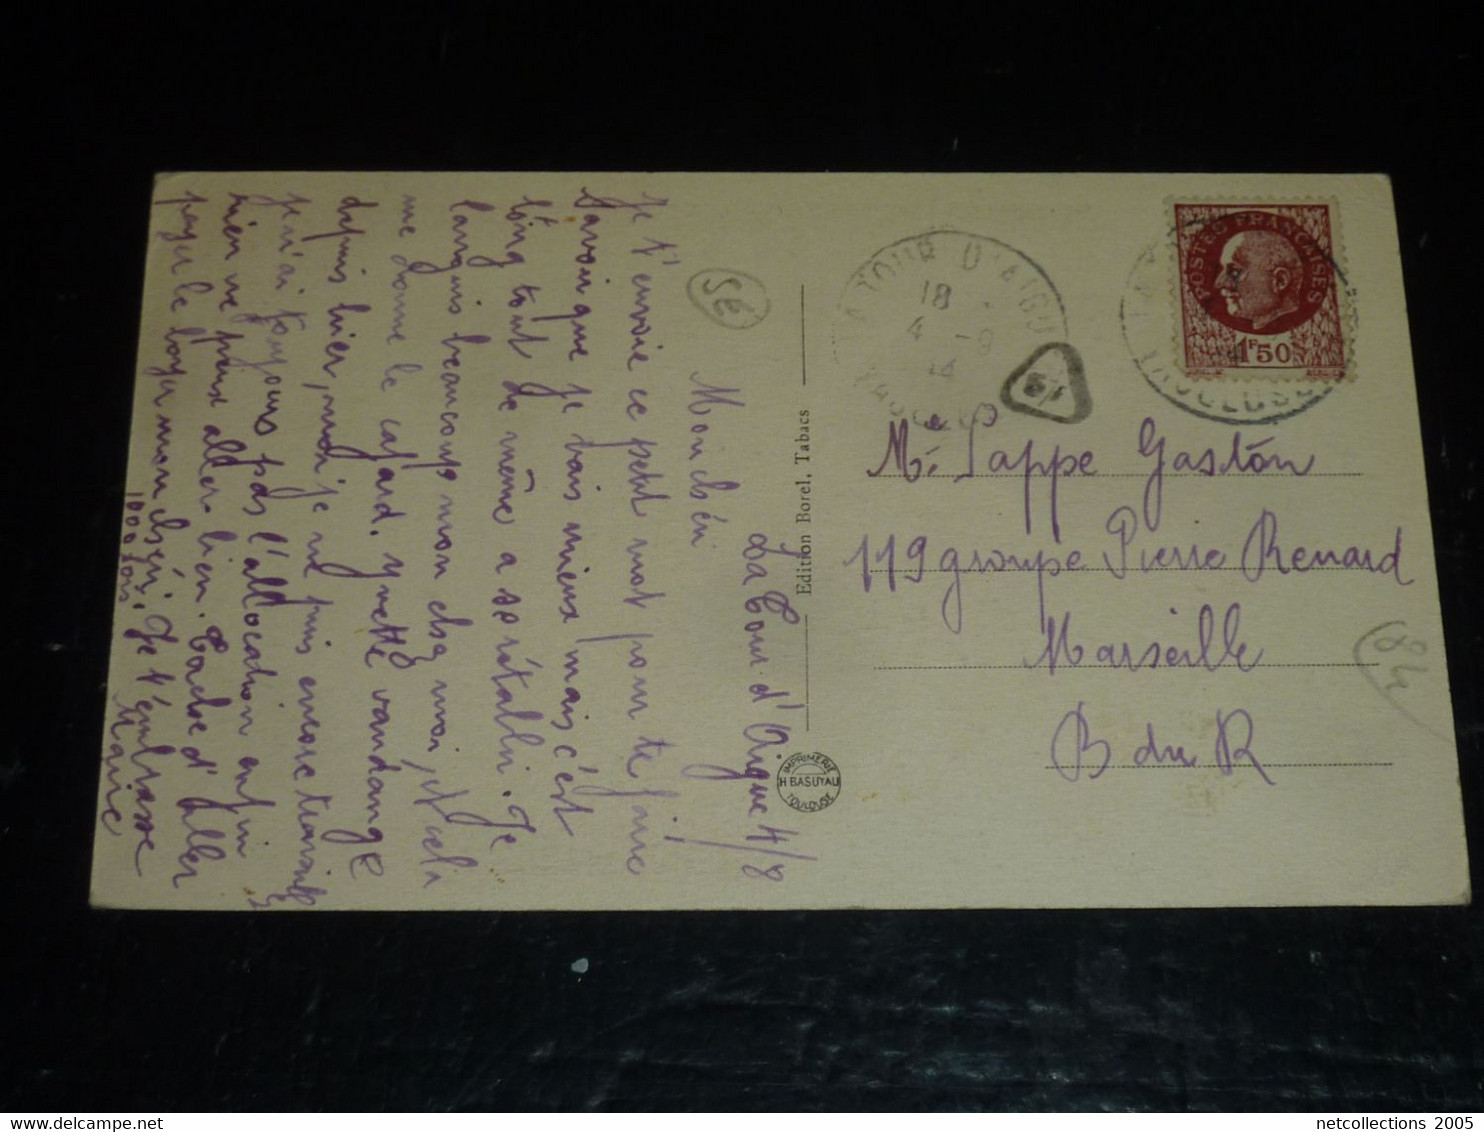 La Tour d'Aigue 4/8
Mon chéri
Je t'envoie ce petit mot pour te faire
savoir que je vais mieux mais c'est
long tout de même a se rétablir. Je
languis beaucoup mon chez moi, et cela
me donne le cafard. Yvette vandange
depuis hier, mdi je ne puis encore travaille
je n'ai toujours pas l'allocation enfin
rien ne peux aller bien. Tache d'aller
payer le loyer mon chéri. Je t'embrasse
1000 fois. Marie
56
Edition Borel, Tabacs
IMPRIMERIE
H BASUYAU
TOULOUSE
LA TOUR D'AIGU
18
4 - 9
POSTES FRANÇAISES
1F50
VAUCLUSE
Mr Pappe Gaston
119 groupe Pierre Renard
Marseille
B du R
84
netcollections 2005